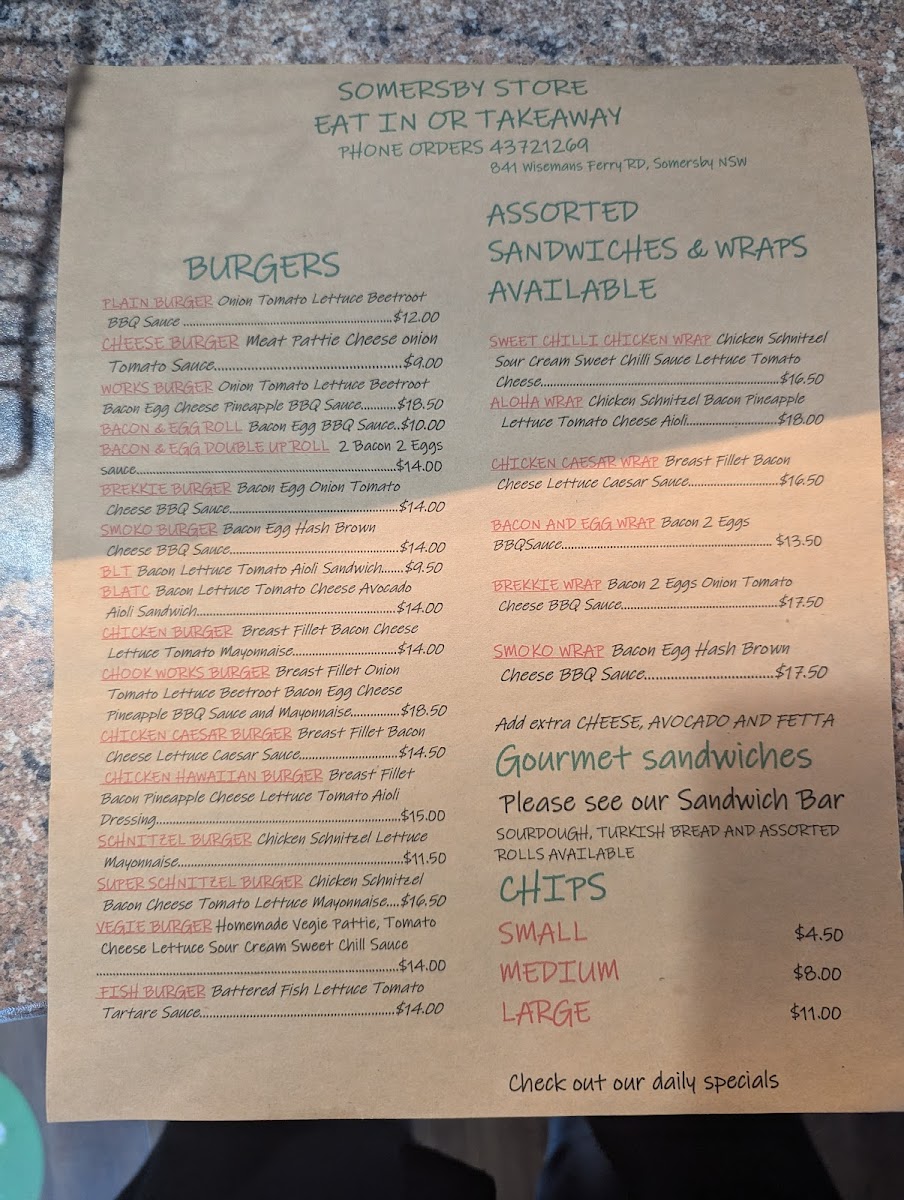 SOMERSBY STORE
EAT IN OR TAKEAWAY
PHONE ORDERS 43721269
841 Wisemans Ferry RD, Somersby NSW
BURGERS
PLAIN BURGER Onion Tomato Lettuce Beetroot
BBQ Sauce ...............................................$12.00
CHEESE BURGER Meat Pattie Cheese onion
Tomato Sauce..........................................$9.00
WORKS BURGER Onion Tomato Lettuce Beetroot
Bacon Egg Cheese Pineapple BBQ Sauce..........$18.50
BACON & EGG ROLL Bacon Egg BBQ Sauce..$10.00
BACON & EGG DOUBLE UP ROLL 2 Bacon 2 Eggs
sauce..........................................................$14.00
BREKKIE BURGER Bacon Egg Onion Tomato
Cheese BBQ Sauce......................................$14.00
SMOKO BURGER Bacon Egg Hash Brown
Cheese BBQ Sauce......................................$14.00
BLT Bacon Lettuce Tomato Aioli Sandwich......$9.50
BLATC Bacon Lettuce Tomato Cheese Avocado
Aioli Sandwich............................................$14.00
CHICKEN BURGER Breast Fillet Bacon Cheese
Lettuce Tomato Mayonnaise........................$14.00
CHOOK WORKS BURGER Breast Fillet Onion
Tomato Lettuce Beetroot Bacon Egg Cheese
Pineapple BBQ Sauce and Mayonnaise...........$18.50
CHICKEN CAESAR BURGER Breast Fillet Bacon
Cheese Lettuce Caesar Sauce......................$14.50
CHICKEN HAWAIIAN BURGER Breast Fillet
Bacon Pineapple Cheese Lettuce Tomato Aioli
Dressing....................................................$15.00
SCHNITZEL BURGER Chicken Schnitzel Lettuce
Mayonnaise.................................................$11.50
SUPER SCHNITZEL BURGER Chicken Schnitzel
Bacon Cheese Tomato Lettuce Mayonnaise....$16.50
VEGIE BURGER Homemade Vegie Pattie, Tomato
Cheese Lettuce Sour Cream Sweet Chill Sauce
....................................................................$14.00
FISH BURGER Battered Fish Lettuce Tomato
Tartare Sauce............................................$14.00
ASSORTED
SANDWICHES & WRAPS
AVAILABLE
SWEET CHILLI CHICKEN WRAP Chicken Schnitzel
Sour Cream Sweet Chilli Sauce Lettuce Tomato
Cheese.....................................................$16.50
ALOHA WRAP Chicken Schnitzel Bacon Pineapple
Lettuce Tomato Cheese Aioli....................$18.00
CHICKEN CAESAR WRAP Breast Fillet Bacon
Cheese Lettuce Caesar Sauce....................$16.50
BACON AND EGG WRAP Bacon 2 Eggs
BBQSauce............................................... $13.50
BREKKIE WRAP Bacon 2 Eggs Onion Tomato
Cheese BBQ Sauce...................................$17.50
SMOKO WRAP Bacon Egg Hash Brown
Cheese BBQ Sauce.............................$17.50
Add extra CHEESE, AVOCADO AND FETTA
Gourmet sandwiches
Please see our Sandwich Bar
SOURDOUGH, TURKISH BREAD AND ASSORTED
ROLLS AVAILABLE
CHIPS
SMALL $4.50
MEDIUM $8.00
LARGE $11.00
Check out our daily specials